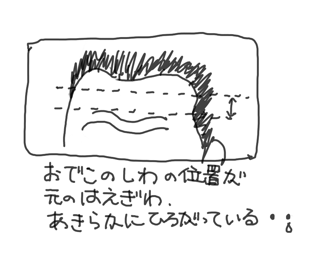 おでこのしわの位置が
元のはえぎわ.
あきらかにひろがっている・・